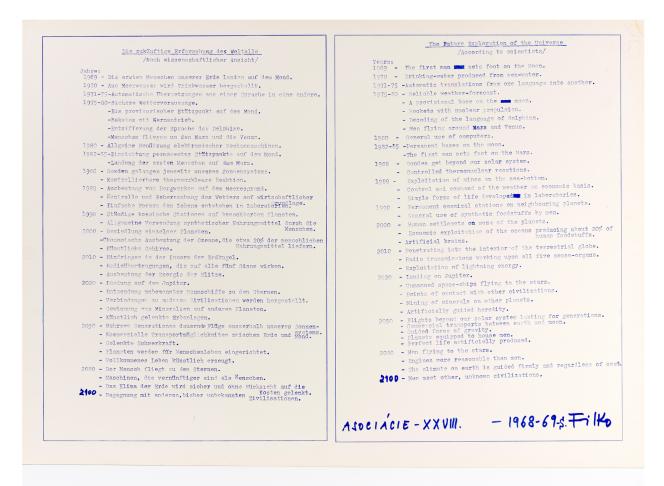 Die zukünftige Erforschung des Weltalls
/Nach wissenschaftlicher Ansicht/
Jahre:
1969 - Die ersten Menschen unserer Erde landen auf dem Mond.
1970 - Aus Meerwasser wird Trinkwasser hergestellt.
1971-75-Automatische Übersetzungen aus einer Sprache in eine andere.
1975-80-Sichere Wettervoraussage.
-Ein provisorischer Stützpunkt auf dem Mond.
-Raketen mit Kernantrieb.
-Entzifferung der Sprache der Delphine.
-Menschen fliegen um den Mars und die Venus.
1980 - Allgemeine Benützung elektronischer Rechenmaschinen.
1982-85-Einrichtung permanenter Stützpunkte auf dem Mond.
-Landung der ersten Menschen auf dem Mars.
1986 - Sonden gelangen jenseits unseres Sonnensystems.
- Kontrollierbare thermonukleare Reaktion.
1989 - Ausbeutung von Bergwerken auf dem Meeresgrund.
- Kontrolle und Beherrschung des Wetters auf wirtschaftlicher Grundlage.
- Einfache Formen des Lebens entstehen in Laboratorien.
1990 - Ständige kosmische Stationen auf benachbarten Planeten.
- Allgemeine Verwendung synthetischer Nahrungsmittel durch die Menschen.
2000 - Besiedlung einzelner Planeten.
- Ökonomische Ausbeutung der Ozeane, die etwa 20% der menschlichen Nahrungsmittel liefern.
- Künstliche Gehirne.
2010 - Eindringen in das Innere der Erdkugel.
- Radioübertragungen, die auf alle fünf Sinne wirken.
- Ausbeutung der Energie der Blitze.
2020 - Landung auf dem Jupiter.
- Entsendung unbemannter Raumschiffe zu den Sternen.
- Verbindungen zu anderen Civilisationen werden hergestellt.
- Gewinnung von Mineralien auf anderen Planeten.
- Künstlich gelenkte Erbanlagen.
2050 - Mehrere Generationen dauernde Flüge ausserhalb unseres Sonnensystems.
- Kommerzielle Transportmöglichkeiten zwischen Erde und Mond.
- Gelenkte Schwerkraft.
- Planeten werden für Menschenleben eingerichtet.
- Vollkommenes Leben künstlich erzeugt.
2080 - Der Mensch fliegt zu den Sternen.
- Maschinen, die vernünftiger sind als Menschen.
- Das Klima der Erde wird sicher und ohne Rücksicht auf die Kosten gelenkt.
2100 - Begegnung mit anderen, bisher unbekannten Civilisationen.
The Future Exploration of the Universe
/According to scientists/
Years:
1969 - The first man sets foot on the Moon.
1970 - Drinking-water produced from sea-water.
1971-75 -Automatic translations from one language into another.
1975-80 - Reliable weather-forecast.
- A provisional base on the moon.
- Rockets with nuclear propulsion.
- Decoding of the language of dolphins.
- Men flying around Mars and Venus.
1980 - General use of computers.
1982-85 -Permanent bases on the moon.
-The first man sets foot on the Mars.
1986 - Sondes get beyond our solar system.
- Controlled thermonuclear reactions.
1989 - Exploitation of mines on the sea-bottom.
- Control and command of the weather on economic basis.
- Simple forms of life developed in laboratories.
1990 - Permanent cosmical stations on neighbouring planets.
- General use of synthetic foodstuffs by men.
2000 - Human settlements on some of the planets.
- Economic exploitation of the oceans producing about 20% of human foodstuffs.
- Artificial brains.
2010 - Penetrating into the interior of the terrestrial globe.
- Radio transmissions working upon all five sense-organs.
- Exploitation of lightning energy.
2020 - Landing on Jupiter.
- Unmanned space-ships flying to the stars.
- Points of contact with other civilizations.
- Mining of minerals on other planets.
- Artificially guided heredity.
2050 - Flights beyond our solar system lasting for generations.
- Commercial transports between earth and moon.
- Guided force of gravity.
- Planets equipped to house men.
- Perfect life artificially produced.
2080 - Men flying to the stars.
- Engines more reasonable than men.
- The climate on earth is guided firmly and regardless of cost.
2100 - Men meet other, unknown civilizations.
ASOCIÁCIE - XXVIII. - 1968-69 - S. Filko